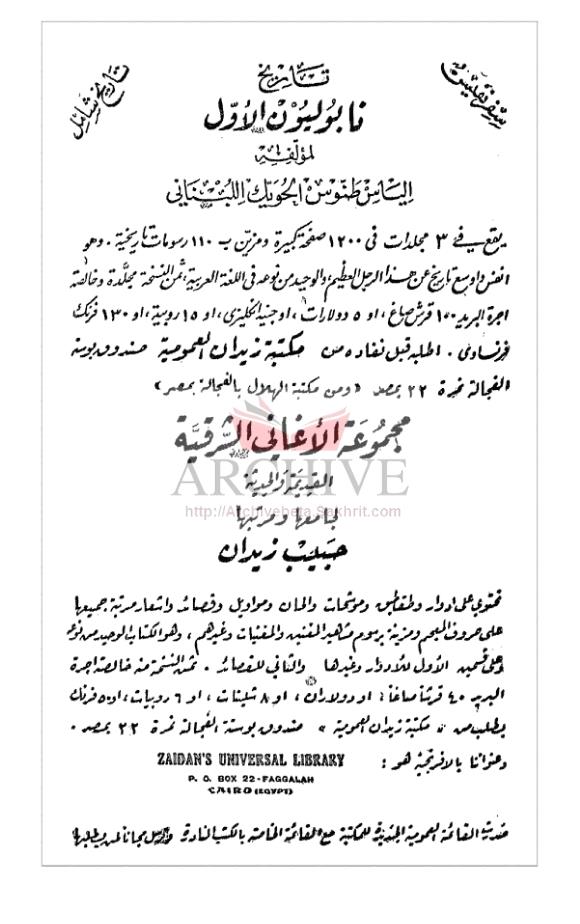 سفر نفيس
تاريخ
تاريخ شامل
نابوليون الأول
لمؤلفه
الياس طنوس الحويك اللبناني
يقع في ٣ مجلدات في ١٢٠٠ صفحة كبيرة ومزين ب ١١٠ رسومات تاريخية . وهو
انفس واوسع تاريخ عن هذا الرجل العظيم، والوحيد من نوعه في اللغة العربية، ثمن النسخة مجلدة وخالصة
اجرة البريد ١٠٠ قرش صاغ ، او ٥ دولارات ، او جنيه انكليزي ، او ١٥ روبية ، او ١٣٠ فرنك
فرنساوي . اطلبه قبل نفاده من مكتبة زيدان العمومية صندوق بوستة
الفجالة نمرة ٢٢ بمصر «ومن مكتبة الهلال بالفجالة بمصر»
مجموعة الأغاني الشرقية
ARCHIVE
القديمة والحديثة
http://Archivebeta.Sakhrit.com
لجامعها ومرتبها
حبيب زيدان
تحتوي على ادوار وطقاطيق وموشحات والحان ومواويل وقصائد واشعار مرتبة جميعها
على حروف المعجم ومزينة برسوم مشاهير المغنين والمغنيات وغيرهم ، وهو الكتاب الوحيد من نوعه
وعلى قسمين الأول للأدوار وغيرها والثاني للقصائد . ثمن النسخة منه خالصة اجرة
البريد ٤٠ قرشاً صاغاً ، او دولاران ، او ٨ شلينات ، او ٦ روبيات ، او ٥٠ فرنك
يطلب من « مكتبة زيدان العمومية » صندوق بوستة الفجالة نمرة ٢٢ بمصر .
وعنواننا بالافرنجية هو :
ZAIDAN'S UNIVERSAL LIBRARY
P. O. BOX 22-FAGGALAH
CAIRO (EGYPT)
صدرت القائمة العمومية الجديدة للمكتبة مع القائمة الخاصة بالكتب النادرة مجاناً لمن يطلبها